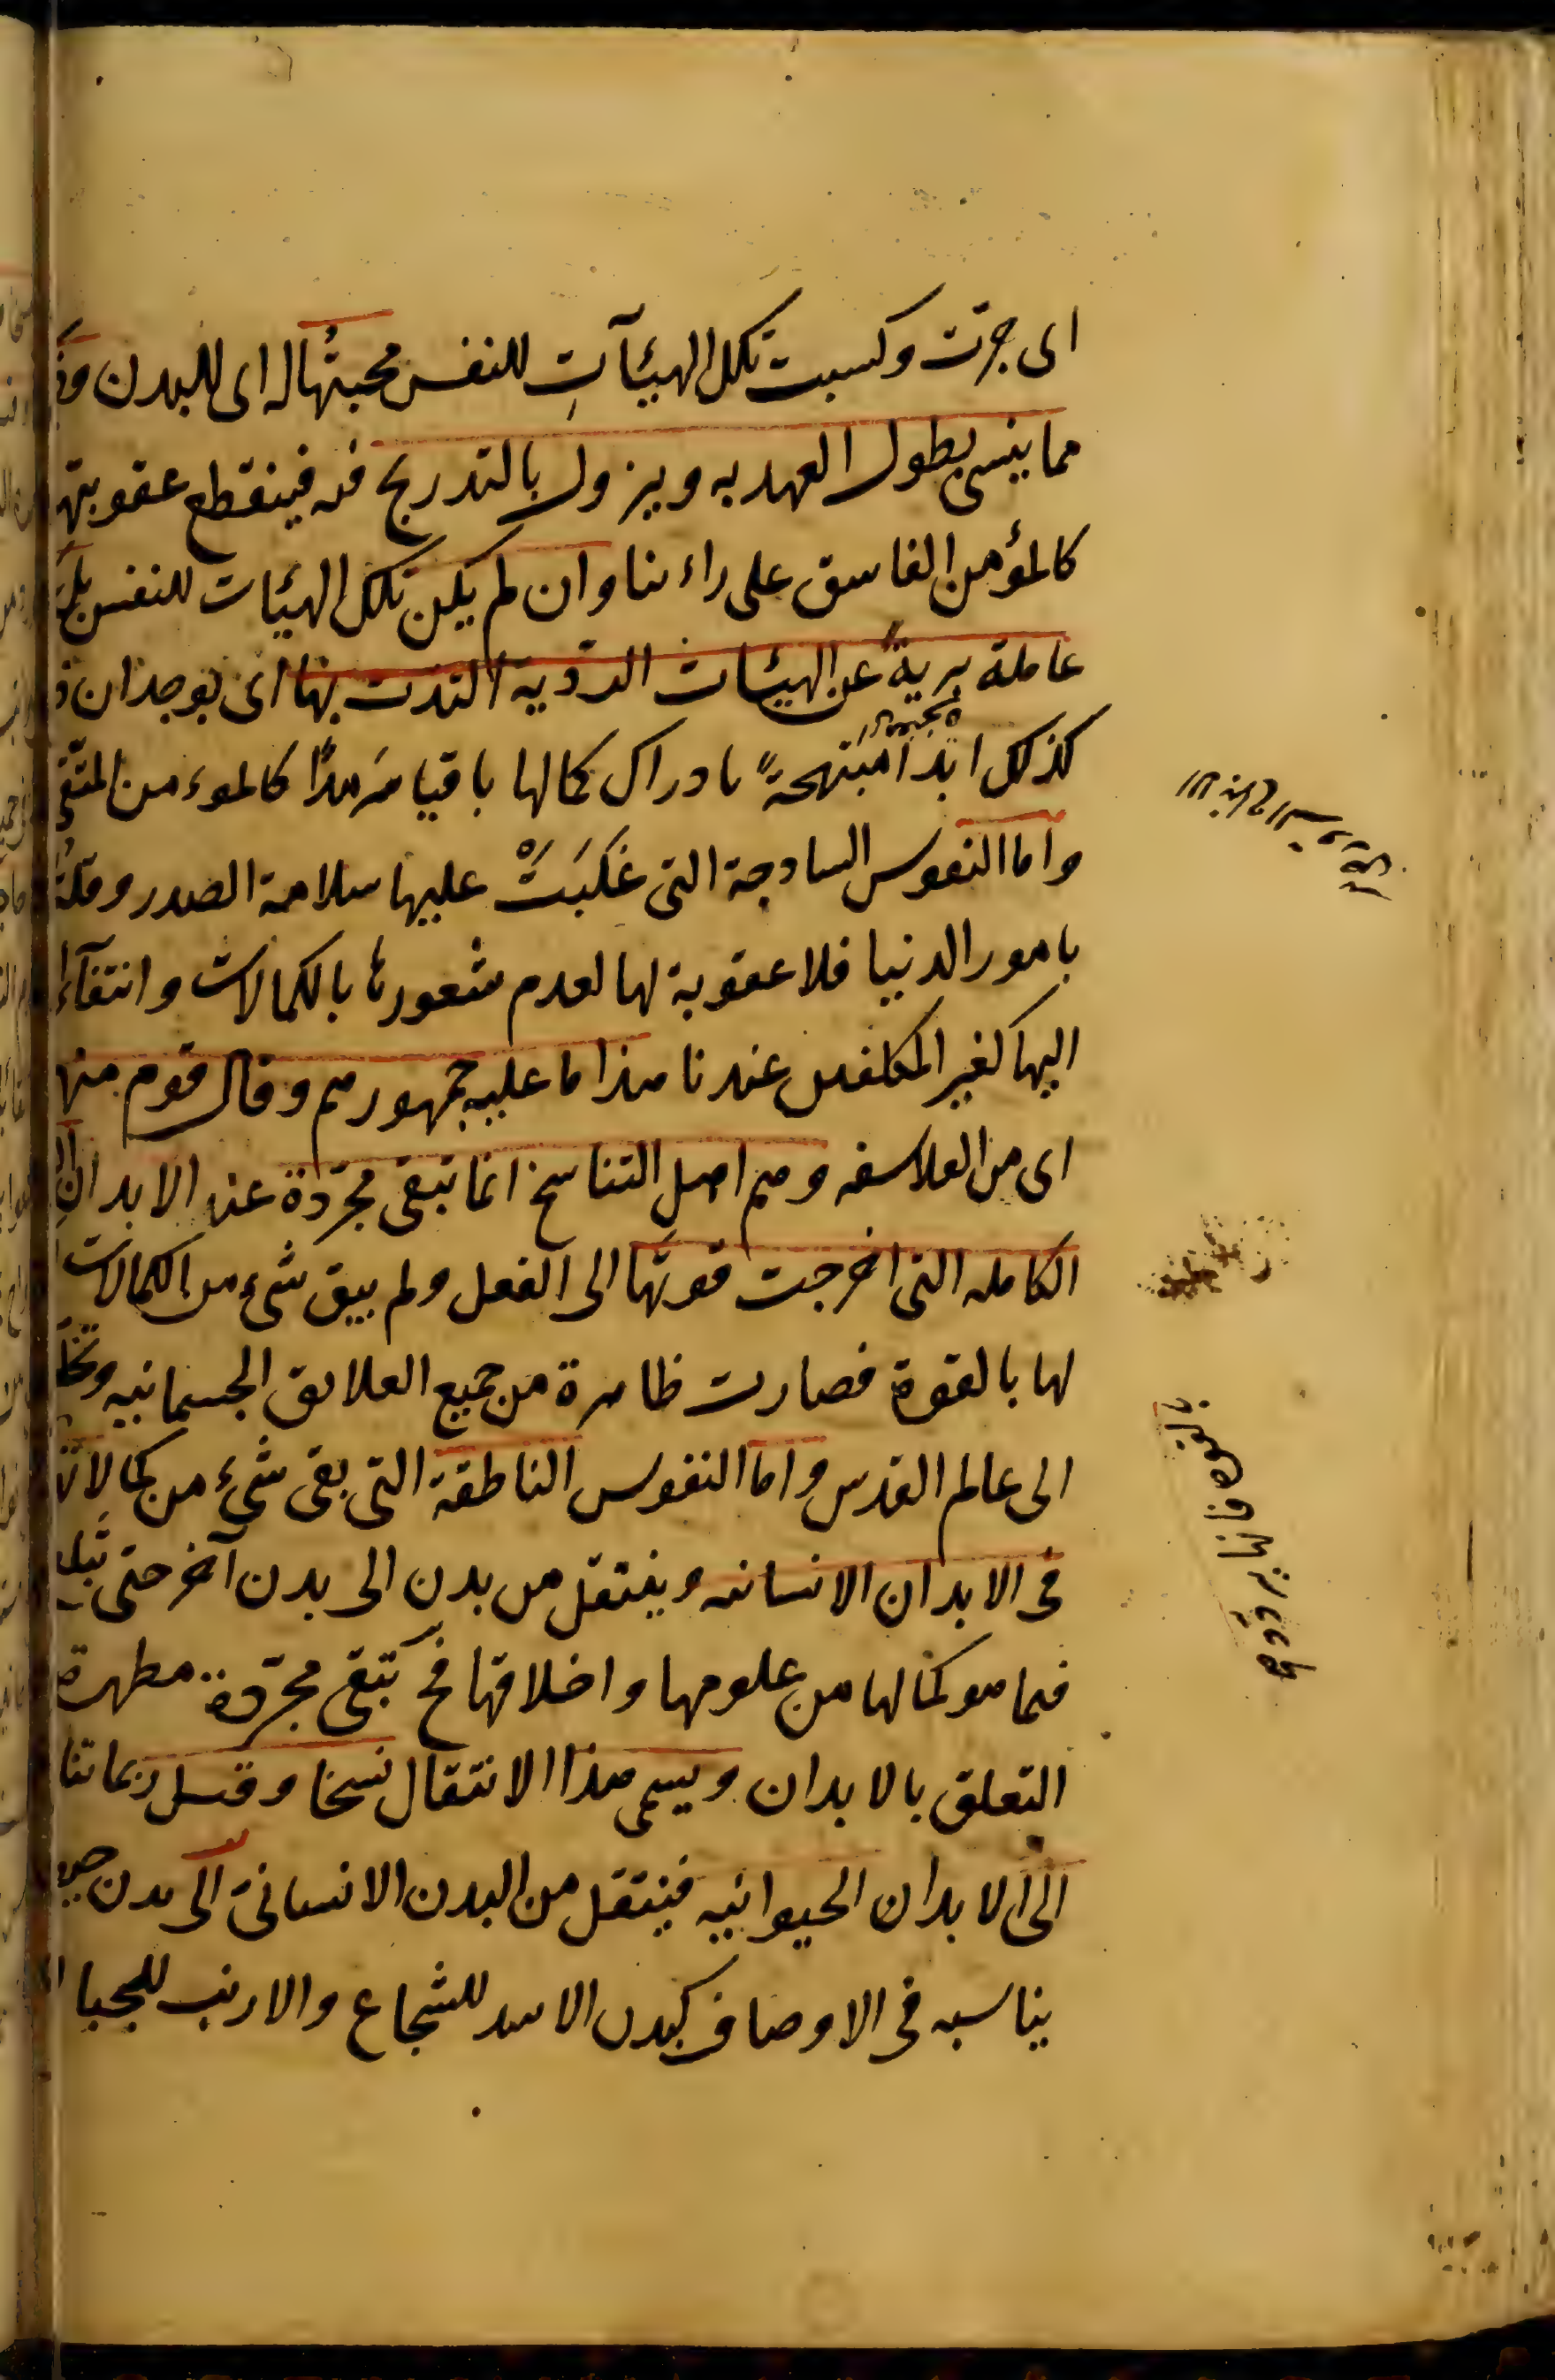 اى جرت وكسبت تلك الهيئآتِ للنفس محبتُها له اى للبدن
مما ينسى بطول العهد به ويزول بالتدريج فينقطع عقوبتها
كالمؤمن الفاسق على راءينا وان لم يكن تلك الهيئات للنفس بل
عاملة برية عن الهيئات الردّية التذت بها اى بوجدان
كذلك ابدا مبتهجةً بادراك كمالها باقيا سَرمدًا كالموءمن المتّقى
واما النفوس الساذجة التى غَلَبَتْ عليها سلامة الصدر وقلة
بامور الدنيا فلا عقوبة لها لعدم شعورها بالكمالات وانتفآء
اليها كغير المكلفين عندنا هذا ما عليه جمهورهم وقال قوم منها
اى من الفلاسفه وهم اهل التناسخ انما تبقى مجرّدة عن الابدان
الكامله التى اخرجت قوتها الى الفعل ولم يبق شىء من الكمالات
لها بالقوة فصارت طاهرة من جميع العلايق الجسمانيه
الى عالم القدس واما النفوس الناطقة التى بقى شىء من كمالاتها
فى الابدان الانسانيه وينتقل من بدن الى بدن آخر حتى تبلغ
فيما هو كمالها من علومها واخلاقها فح تبقى مجرّدة مطهرة
التعلق بالابدان ويسمى هذا الانتقال نسخا وقيل ربما تنا
الى الابدان الحيوانيه فينتقل من البدن الانسانى الى بدن
يناسبه فى الاوصاف كبدن الاسد للشجاع والارنب للجبان